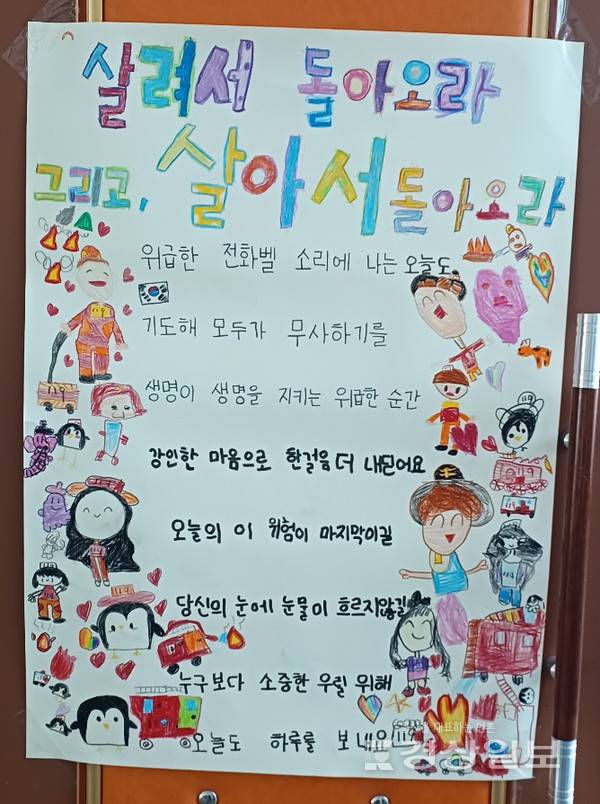 살려서 돌아오라
그리고, 살아서 돌아오라
위급한 전화벨 소리에 나는 오늘도
기도해 모두가 무사하기를
생명이 생명을 지키는 위급한 순간
강인한 마음으로 한걸음 더 내딛어요
오늘의 이 위험이 마지막이길
당신의 눈에 눈물이 흐르지않길
누구보다 소중한 우릴 위해
오늘도 하루를 보내요
119
119
119
119
대표하는 언론
경상일보